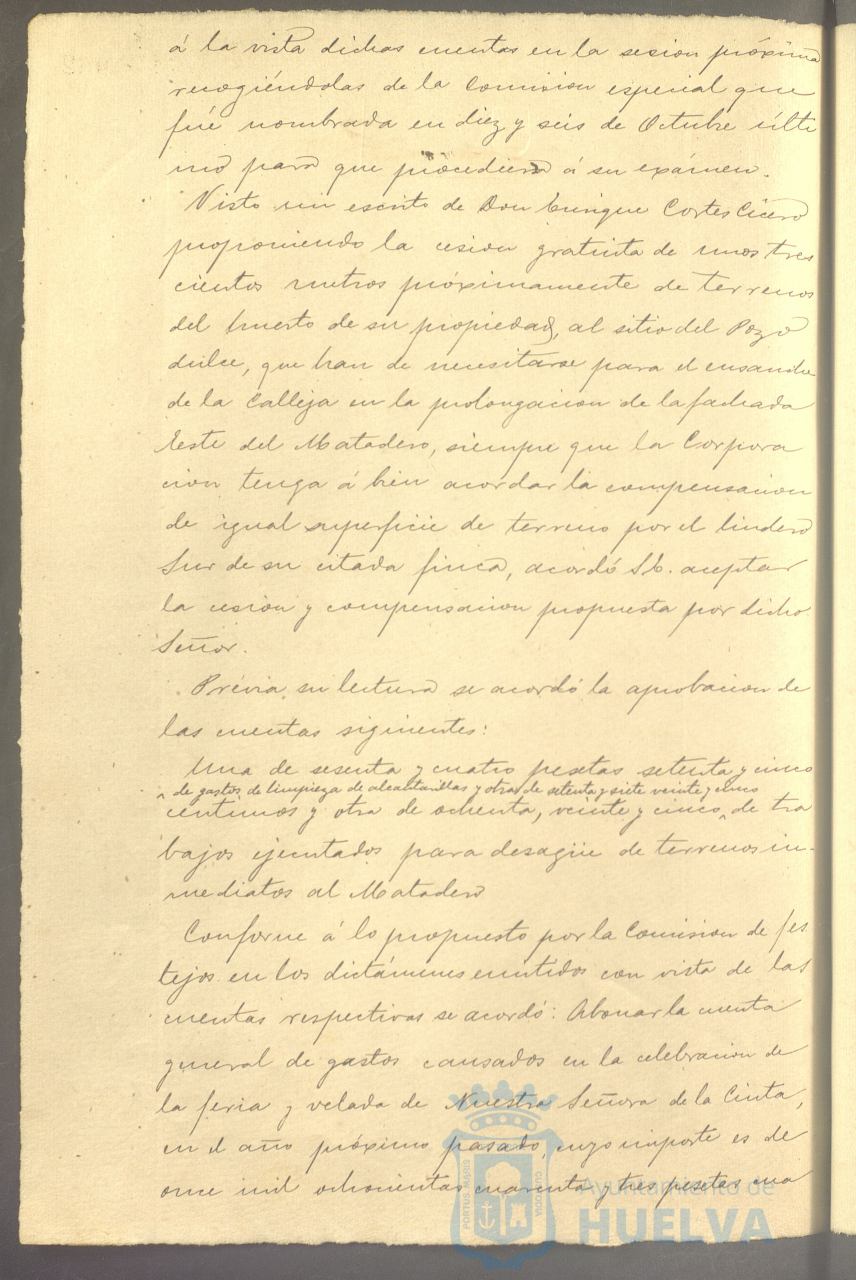 á la vista dichas cuentas en la sesion próxima
recogiéndolas de la Comision especial que
fué nombrada en diez y seis de Octubre últi
mo para que procediera á su exámen.
Visto un escrito de Don Enrique Cortes Cicero
proponiendo la cesion gratuita de unos tres
cientos metros próximamente de terrenos
del huerto de su propiedad, al sitio del Pozo
dulce, que han de necesitarse para el ensanche
de la Calleja en la prolongacion de la fachada
Este del Matadero, siempre que la Corpora
cion tenga á bien acordar la compensacion
de igual superficie de terreno por el lindero
Sur de su citada finca, acordó S.E. aceptar
la cesion y compensacion propuesta por dicho
Señor.
Prévia su lectura se acordó la aprobacion de
las cuentas siguientes:
Una de sesenta y cuatro pesetas setenta y cinco
de gastos de limpieza de alcantarillas y otra de setenta y siete veinte y cinco
centimos y otra de ochenta, veinte y cinco, de tra
bajos ejecutados para desagüe de terrenos in-
mediatos al Matadero
Conforme á lo propuesto por la Comision de fes
tejos en los dictámenes emitidos con vista de las
cuentas respectivas se acordó: Abonar la cuenta
general de gastos causados en la celebracion de
la feria y velada de Nuestra Señora de la Cinta,
en el año próximo pasado, cuyo importe es de
once mil ochocientas cuarenta y tres pesetas cua
PORTUS MARIS
Ayuntamiento de
HUELVA